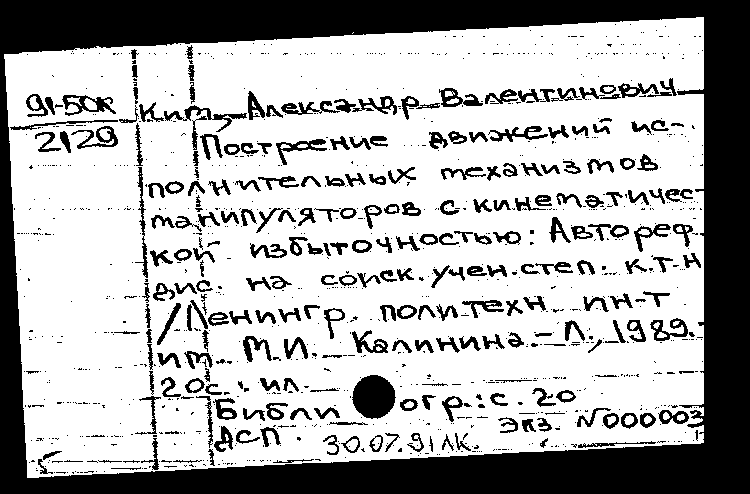 91-50к
2129
Ким, Александр Валентинович
Построение движений ис-
полнительных механизмов
манипуляторов с кинематичес-
кой избыточностью: Автореф.
дис. на соиск. учен. степ. к.т.н
/Ленингр. политехн ин-т
им. М.И. Калинина. - Л., 1989.-
20с.: ил.
Библиогр.: с. 20
ДСП. 30.07.91 ЛК. Экз. N000003